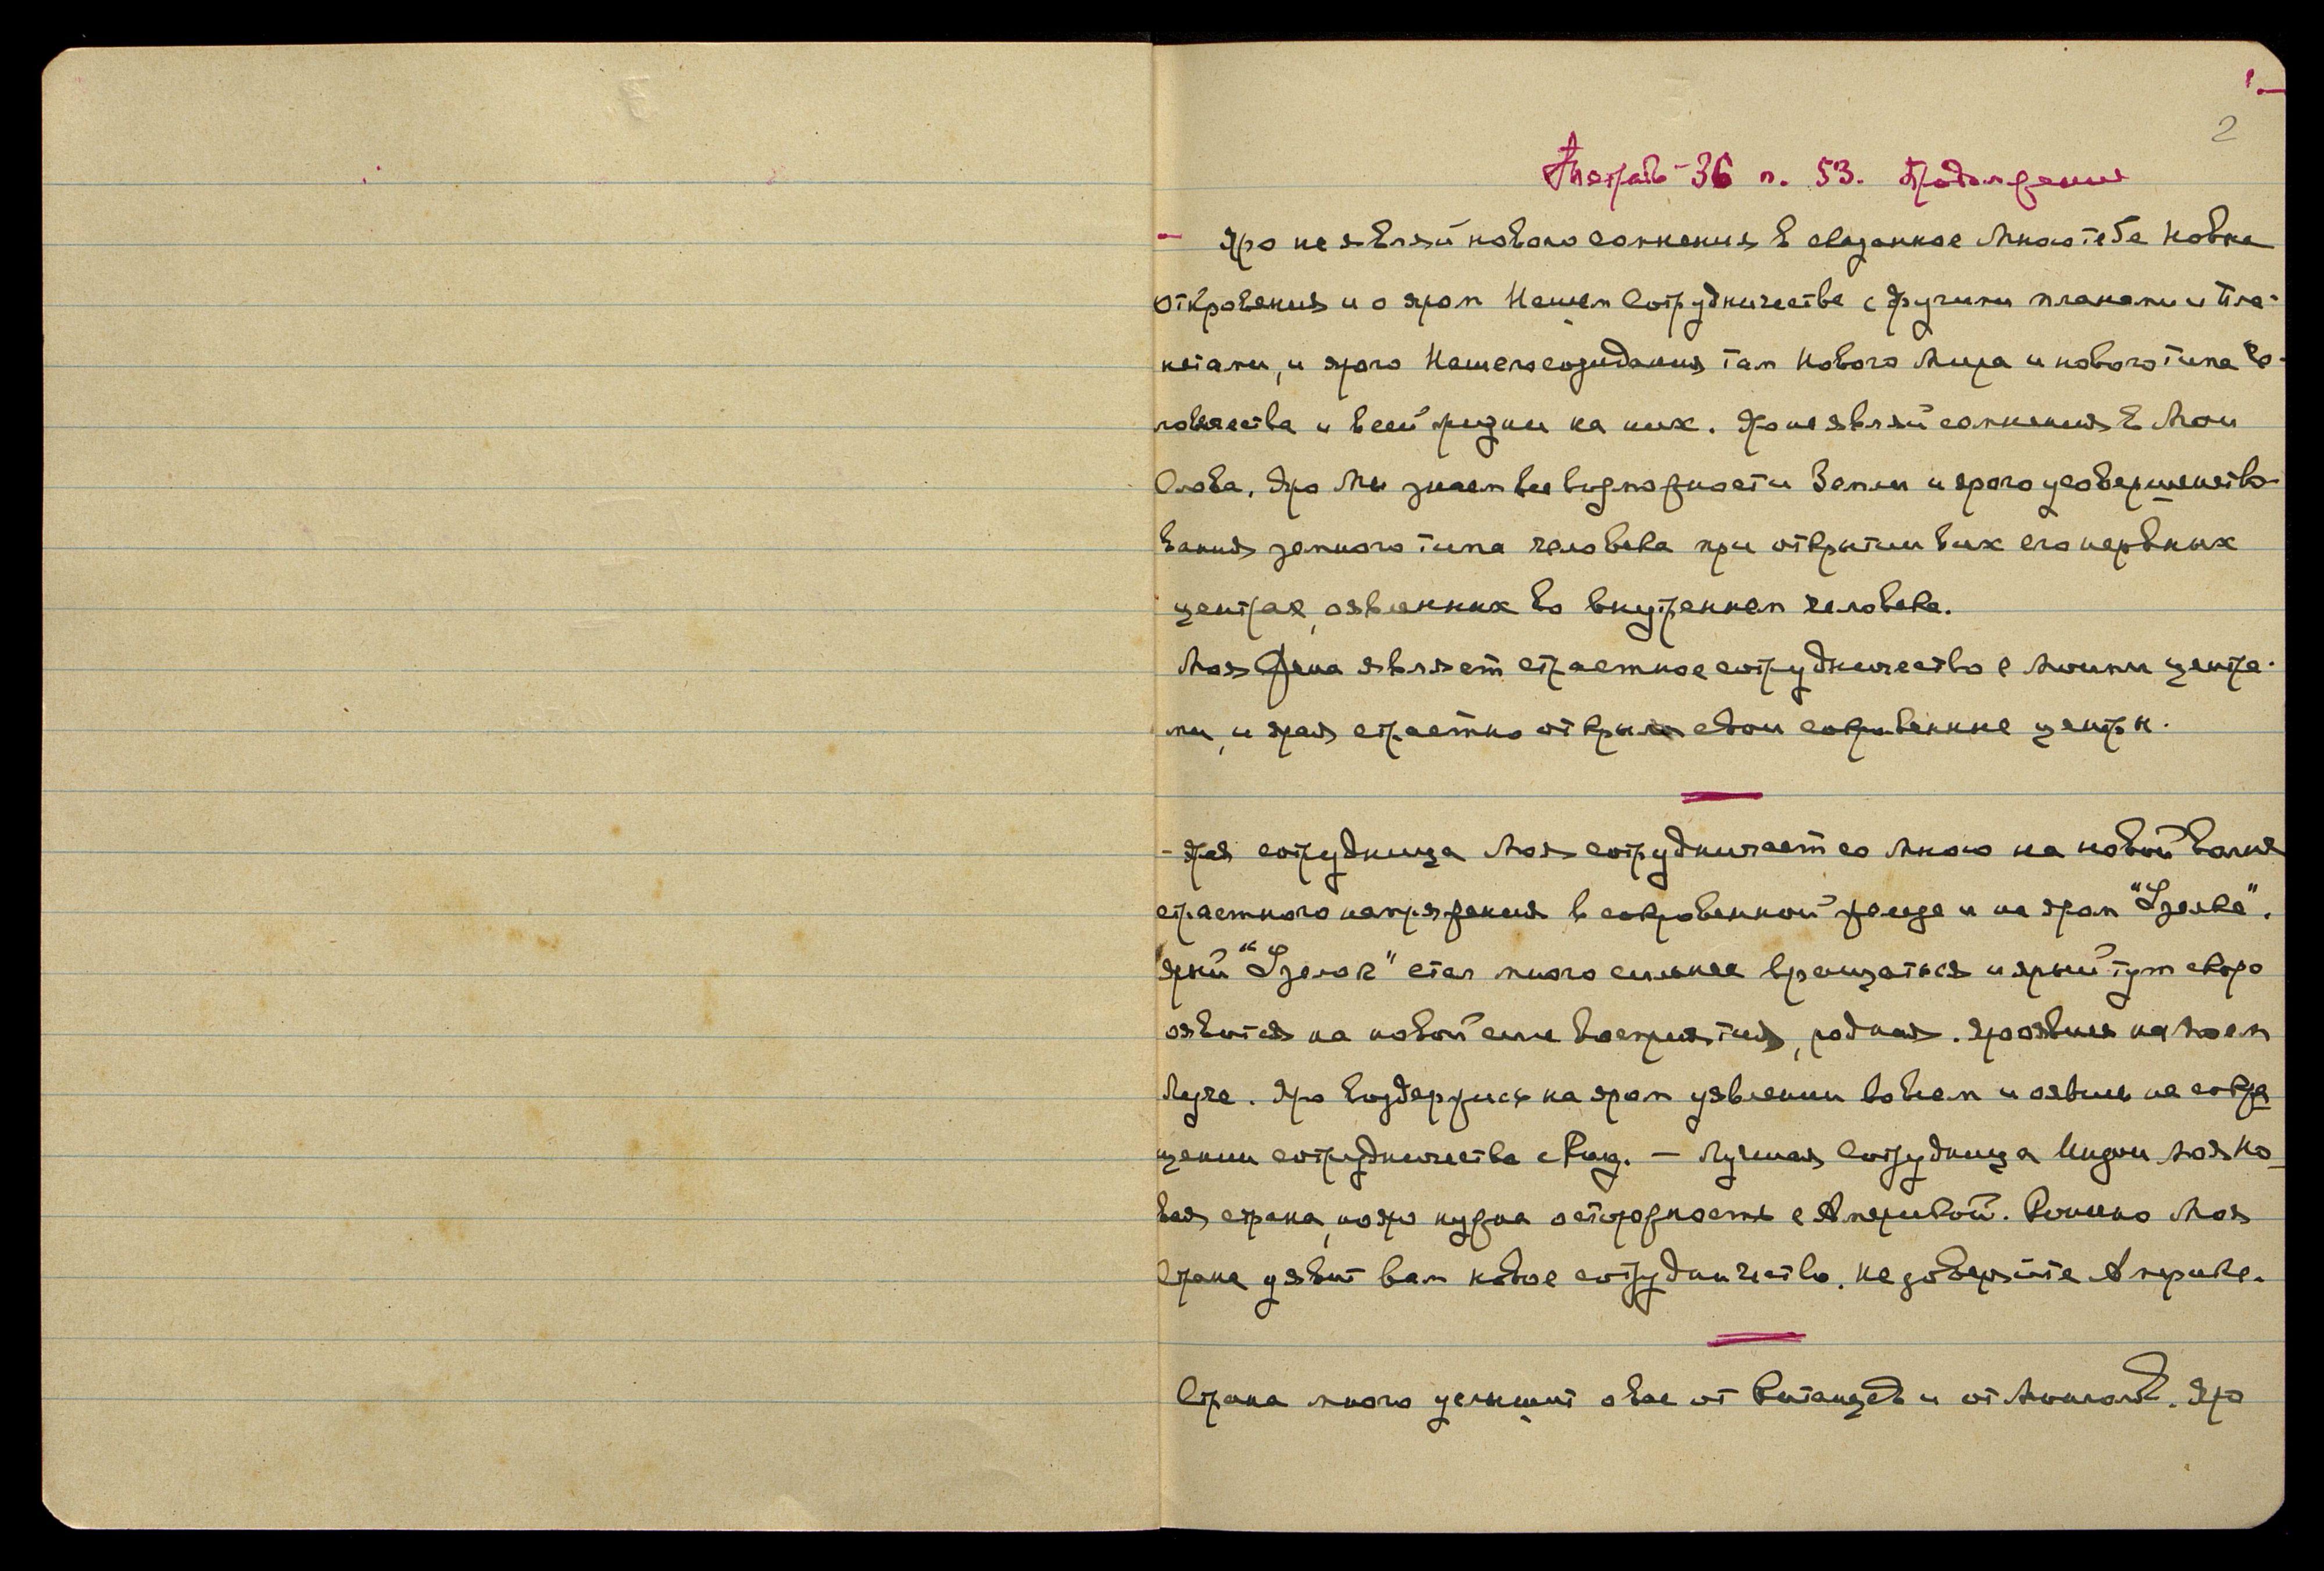 1.
2
Тетрадь 36 п. 53. Продолжение
Яро не являй нового сомнения в сказанное Мною тебе Новые
Откровения и о яром Нашем Сотрудничестве с другими планами и Пла-
нетами, и ярого Нашего созидания там Нового Мира и нового типа че-
ловечества и всей жизни на них. Яро не являй сомнения в Мои
Слова. Яро Мы знаем все возможности Земли и ярого усовершенство-
вания земного типа человека при открытии всех его нервных
центрах, оявленных во внутреннем человеке.
Моя Жена являет страстное сотрудничество с Моими центра-
ми, и ярая страстно открыла свои сокровенные центры.
- Ярая сотрудница Моя сотрудничает со Мною на новой волне
страстного напряжения в сокровенной железе и на яром "Узелке".
Ярый "Узелок" стал много сильнее вращаться и ярый тут скоро
оявится на новой силе восприятия, родная. Яро оявись на Моем
Луче. Яро воздержись на яром уявлении во всем и оявись на сокра
щении сотрудничества с Рид. — Лучшая Сотрудница Индии Моя Но-
вая страна, но яро нужна осторожность с Америкой. Конечно Моя
Страна уявит вам новое сотрудничество. Не доверяйте Америке.
Страна много услышит о вас от Китайцев и от Монголов. Яро